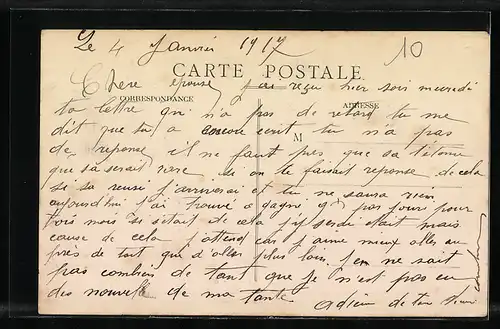 Le 4 Janvier 1917
10
CARTE POSTALE
Chere epouse j'ai reçu hier soir mercredi
CORRESPONDANCE
ADRESSE
ta lettre qui n'a pas de retard tu me
M
dit que tu a encore ecrit tu n'a pas
de reponse il ne faut pas que sa t'etonne
que sa serait rare si on te faisait reponse de cela
si sa reussi j'arriverai et tu ne saura rien
aujourd'hui j'ai trouvé a gagné par jour pour
trois mois si s'etait de cela j'y serai mais
cause de cela j'attend car j'aime mieux aller au
près de toi que d'aller plus loin. j'en ne sait
pas combien de tant que je n'est pas eu
des nouvelle de ma tante
adieu de ton